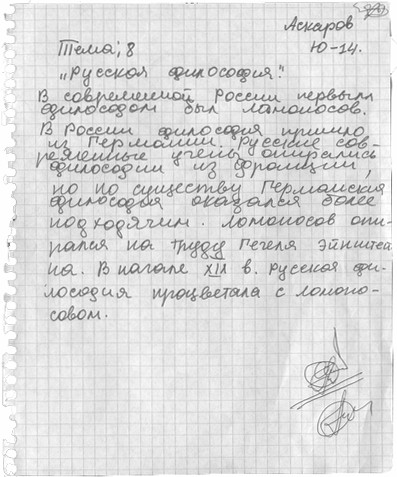 Аскаров
Тема; 8 Ю-14.
„Русская философия".
В современной России первым
философом был Ломоносов.
В России философия пришло
из Германии. Русские сов-
ременные учены опирались
философии из Франции,
но по существу Германская
философия оказался более
подходячим. Ломоносов опи-
рался на труду Гегеля Эйнштей
на. В начале XIX в. русская фи-
лософия процветала с Ломоно-
совом.